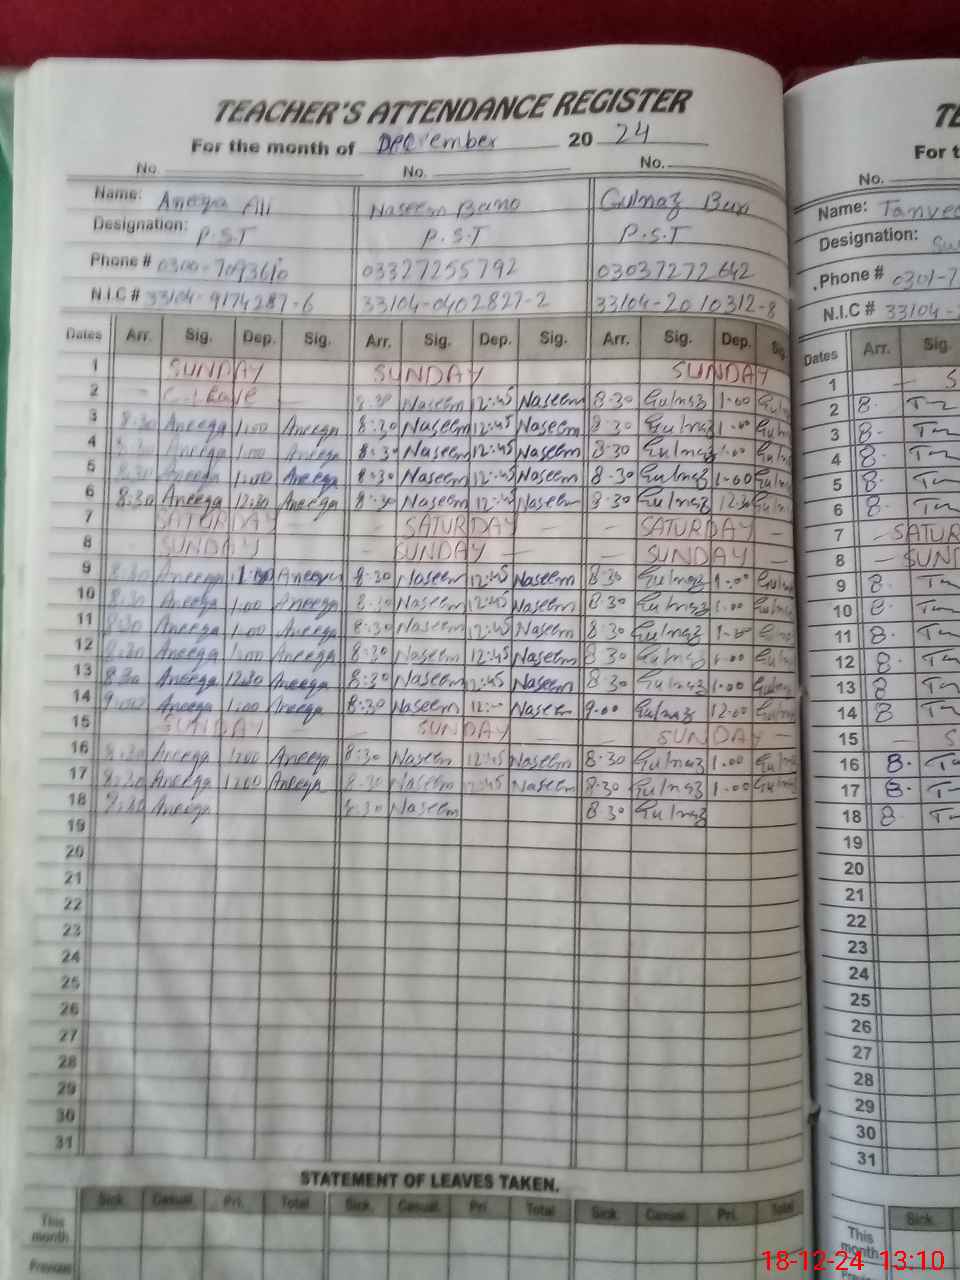 TEACHER'S ATTENDANCE REGISTER
For the month of December 20 24
No. No. No.
Name: Aneeqa Ali Naseem Bano Gulnaz Bux
Designation: P.S.T P.S.T P.S.T
Phone # 03327255792 03037272642
N.I.C # 33104-9174287-6 33104-0402827-2 33104-2010312-8
Dates Arr. Sig. Dep. Sig. Arr. Sig. Dep. Sig. Arr. Sig. Dep. Sig.
1 SUNDAY SUNDAY SUNDAY
2 C-Leave 8:30 Naseem 12:45 Naseem 8-30 Gulnaz 1-00 Gulnaz
3 8:30 Aneeqa 1:00 Aneeqa 8:30 Naseem 12:45 Naseem 8-30 Gulnaz 1-00 Gulnaz
4 8:30 Aneeqa 1:00 Aneeqa 8:30 Naseem 12:45 Naseem 8-30 Gulnaz 1-00 Gulnaz
5 8:30 Aneeqa 1:00 Aneeqa 8:30 Naseem 12:45 Naseem 8-30 Gulnaz 1-00 Gulnaz
6 8:30 Aneeqa 12:30 Aneeqa 8:30 Naseem Naseem 8-30 Gulnaz 12-30 Gulnaz
7 SATURDAY - SATURDAY - SATURDAY -
8 - SUNDAY - - SUNDAY - - SUNDAY -
9 8:30 Aneeqa Aneeqa 8:30 Naseem 12:45 Naseem 8-30 Gulnaz 1-00 Gulnaz
10 8:30 Aneeqa 1:00 Aneeqa 8:30 Naseem 12:45 Naseem 8-30 Gulnaz 1-00 Gulnaz
11 8:30 Aneeqa 1:00 Aneeqa 8:30 Naseem 12:45 Naseem 8-30 Gulnaz 1-00 Gulnaz
12 8:30 Aneeqa 1:00 Aneeqa 8:30 Naseem 12:45 Naseem 8-30 Gulnaz 1-00 Gulnaz
13 8:30 Aneeqa 12:30 Aneeqa 8:30 Naseem 12:45 Naseem 8-30 Gulnaz 1-00 Gulnaz
14 9:00 Aneeqa 1:00 Aneeqa 8:30 Naseem Naseem 9-00 Gulnaz 12-00 Gulnaz
15 SUNDAY - - SUNDAY - - SUNDAY -
16 8:30 Aneeqa 1:00 Aneeqa 8:30 Naseem 12:45 Naseem 8-30 Gulnaz 1-00 Gulnaz
17 8:30 Aneeqa 1:00 Aneeqa 8:30 Naseem 12:45 Naseem 8-30 Gulnaz 1-00 Gulnaz
18 8:30 Aneeqa 8:30 Naseem 8-30 Gulnaz
19
20
21
22
23
24
25
26
27
28
29
30
31
STATEMENT OF LEAVES TAKEN.
Sick. Casual. Pri. Total Sick. Casual. Pri. Total Sick. Casual. Pri. Total
This month
Previous
TE
For t
No.
Name:
Designation:
Phone # 0301-7
N.I.C # 33104-
Dates Arr. Sig
1 - S
2 8-
3 8-
4 8-
5 8-
6 8-
7 - SATUR
8 - SUN
9 8-
10 8-
11 8-
12 8-
13 8
14 8
15 - S
16 8-
17 8-
18 8
19
20
21
22
23
24
25
26
27
28
29
30
31
Sick.
This month
18-12-24 13:10